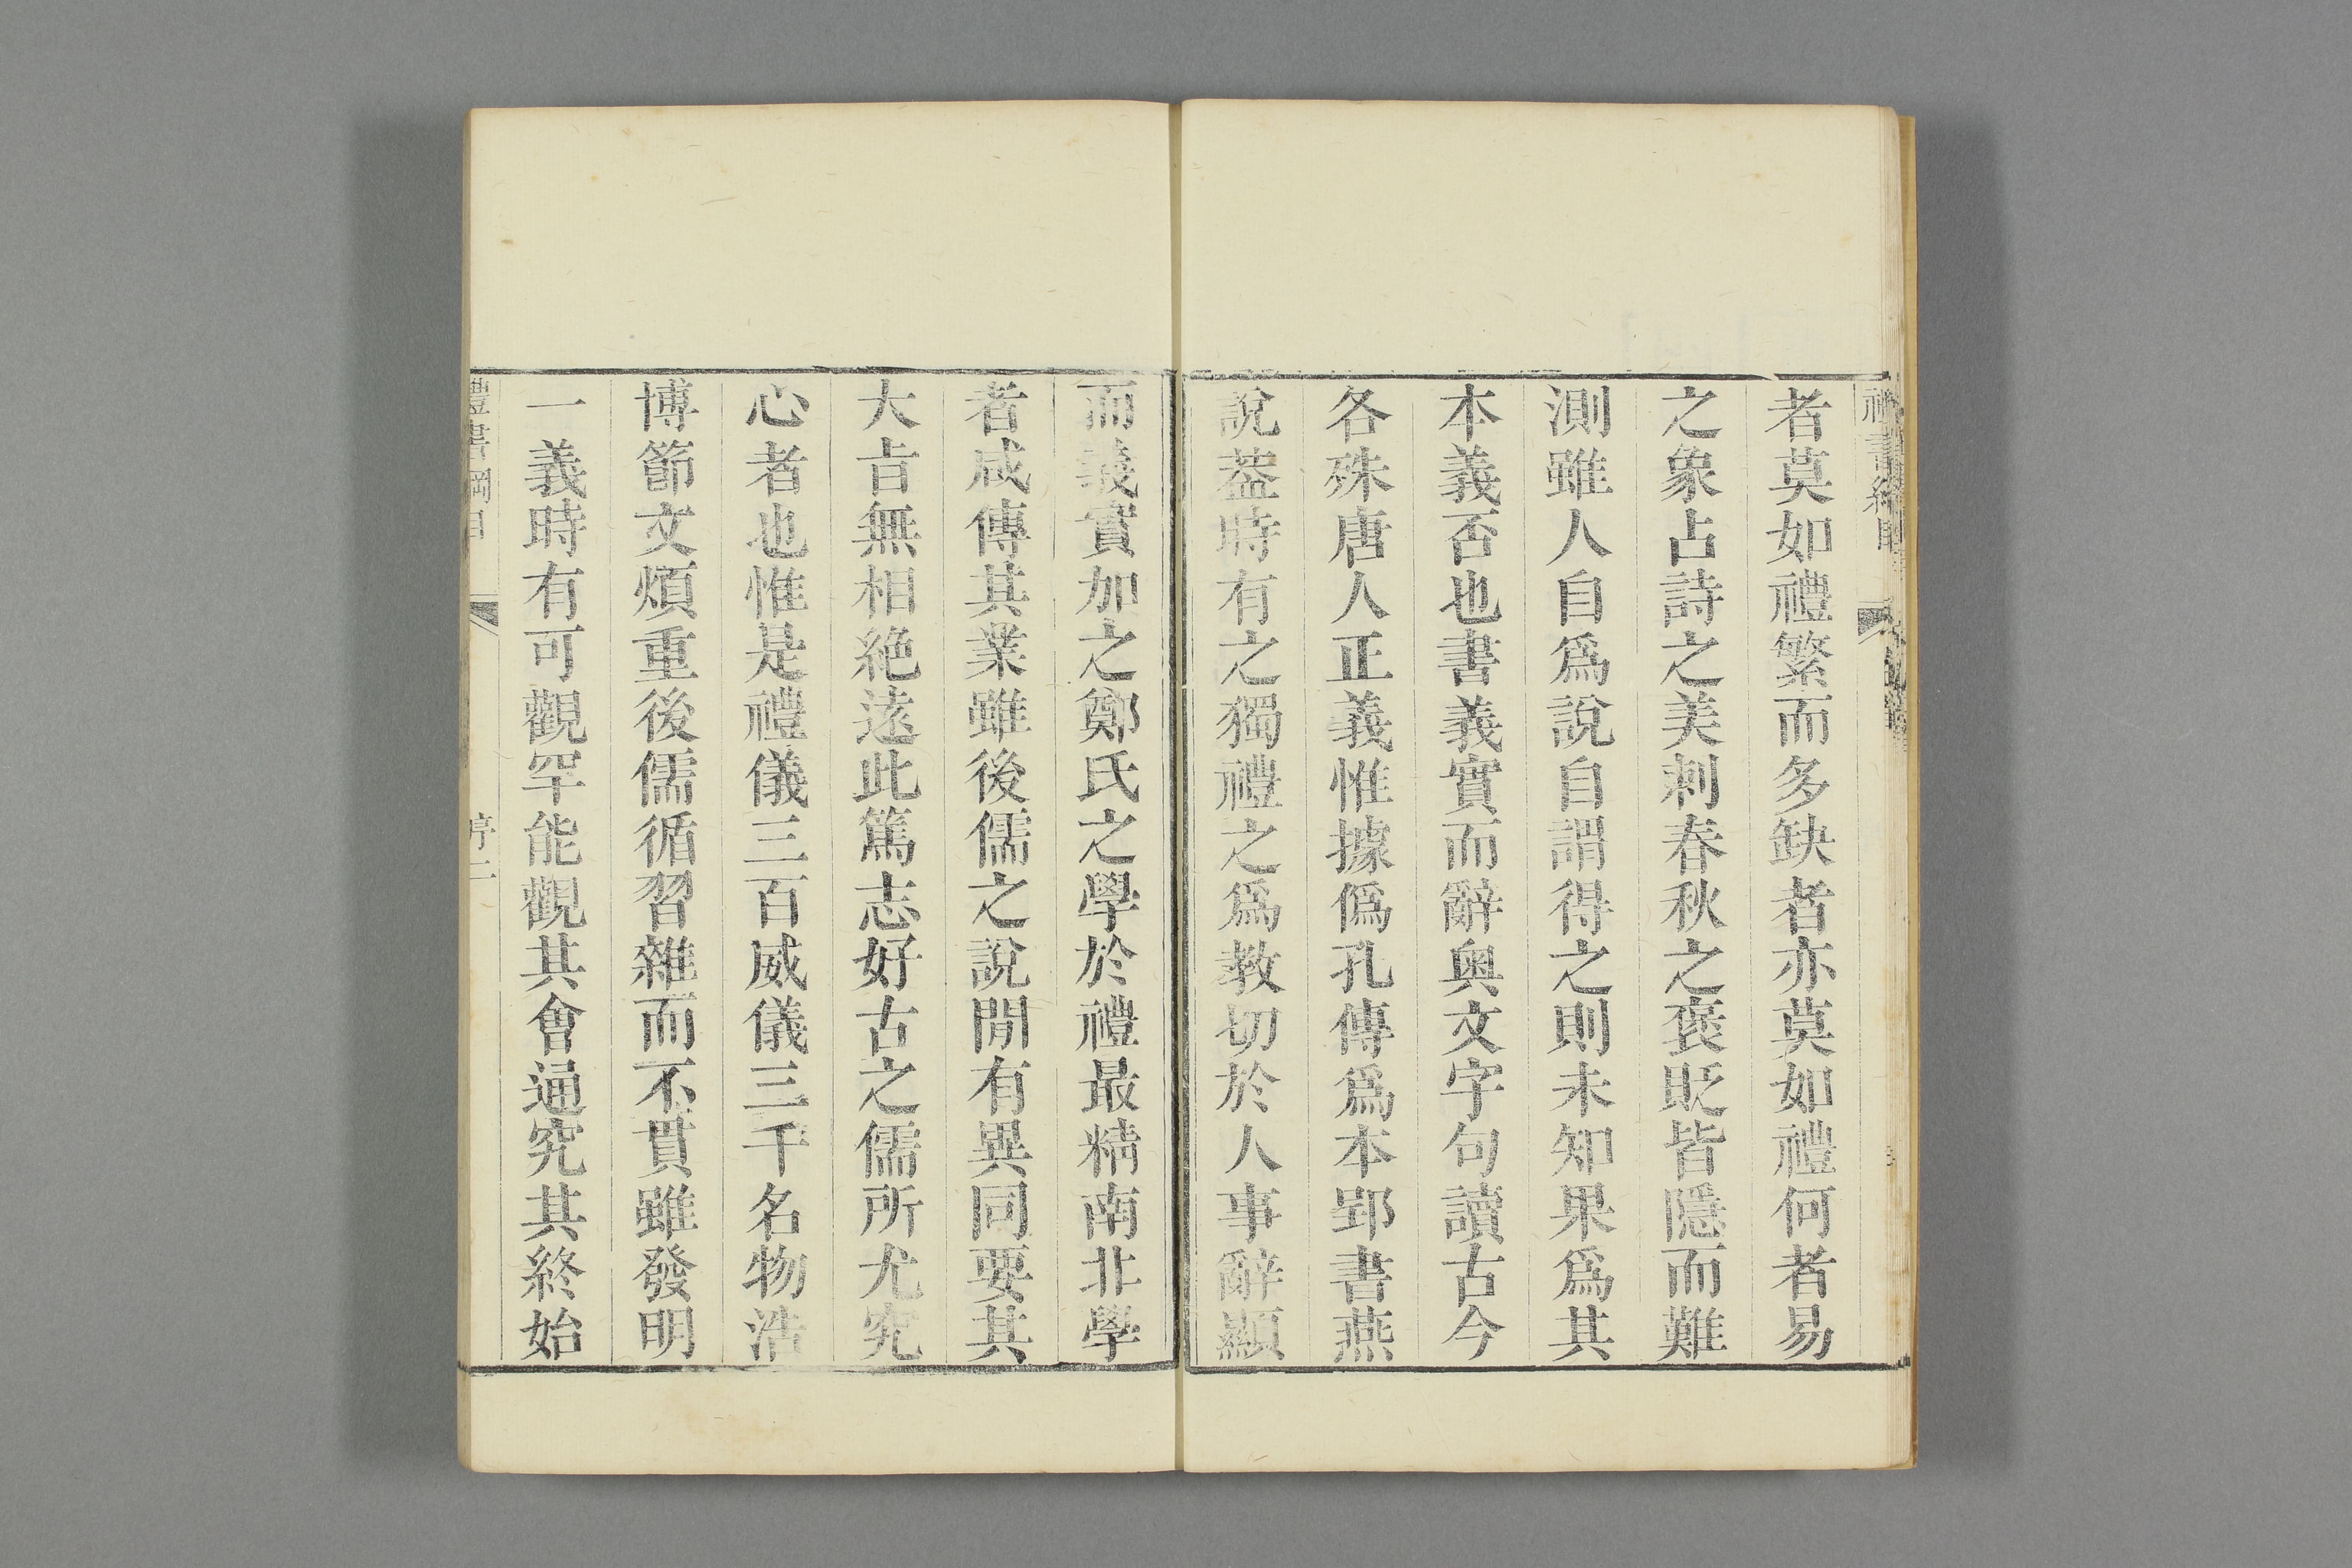 者莫如禮繁而多缺者亦莫如禮何者易
之象占詩之美刺春秋之褒貶皆隱而難
測雖人自爲說自謂得之則未知果爲其
本義否也書義實而辭奥文字句讀古今
各殊唐人正義惟據僞孔傳爲本郢書燕
說葢時有之獨禮之爲教切於人事辭顯
而義實加之鄭氏之學於禮最精南北學
者咸傳其業雖後儒之說閒有異同要其
大㫖無相絶遠此篤志好古之儒所尤究
心者也惟是禮儀三百威儀三千名物浩
博節文煩重後儒循習雜而不貫雖發明
一義時有可觀罕能觀其會通究其終始
禮書綱目
序二